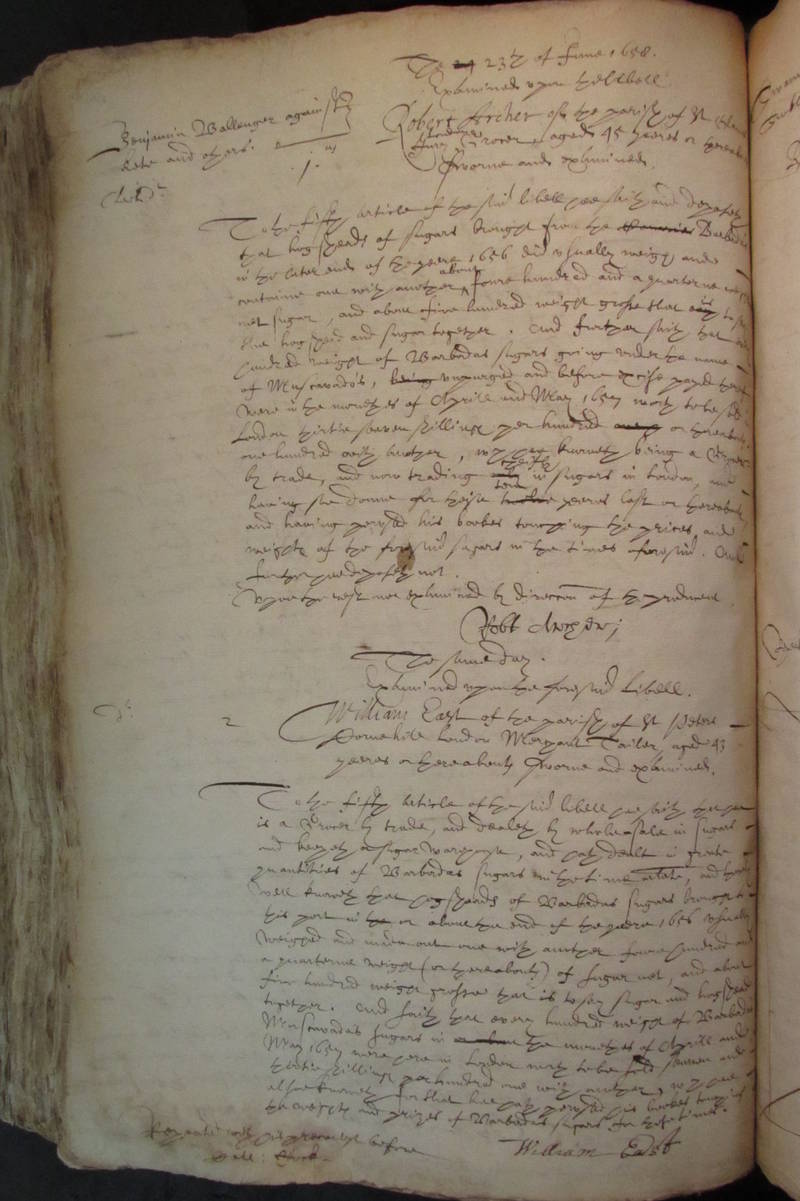 The 24 23th of June 1658.
Examined upon the libell
Benjamin Ballenger against
and others.
Robert Archer of the parish of St
London Grocer aged 45 yeeres or thereabouts
Sworne and examined.
1.us
To the fifth article of the said libell hee saith and deposeth
that hogsheads of sugars brought from the Barbadas
in the later end of the yeere 1656 did usually weigh and
containe one with another about foure hundred and a quarterne
net sugar, and about five hundred weight grosse that is to say
the hogshead and sugar together. And further saith that
hundred weight of Barbadas sugars going under the name
of Muscavados, being unpurged and before excise payed
were in the moneths of Aprill and May 1657 worth to be sold
London thirtie seaven shillings per hundred or thereabouts
one hundred with another, which hee knoweth being a Grocer
by trade, and now trading in sugars in London, and
having soe donne for theise yeeres last or thereabouts
and having perused his bookes touching the prices and
weight of the foresaid sugars in the times aforesaid. And
further hee deposeth not.
Upon the rest not examined by direction of the producent
Robt Archer;
The same day.
Examined upon the foresaid libell.
2
William East of the parish of St Peters
Cornehill London Merchant Tailer, aged 43
yeeres or thereabouts Sworne and examined.
To the fifth article of the said libell hee saith that hee
is a Grocer by trade, and dealeth by whole-sale in sugars
and keepeth a sugar warehouse, and hath dealt in greate
quantities of Barbadas sugars in the time arlate, and thereby
well knoweth that hogsheads of Barbadas sugars brought to
this port in the or about the end of the yeere 1656 usually
weighed and made out one with another foure hundred and
a quarterne weight (or thereabouts) of sugar net, and about
five hundred weight grosse that is to say sugar and hogshead
together. And saith that every hundred weight of Barbadas
Muscavados sugars in the moneths of Aprill and
May 1657 were here in London worth to be sold seaven and
thirtie shillings per hundred one with another, which hee
alsoe knoweth for that hee hath perused his bookes touching
the weight and prizes of Barbadas sugars for those times.
Repeated with his precedent before
William East